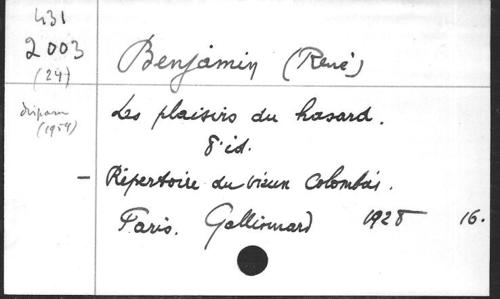 431
2003
(24)
Benjamin (René)
disparu
(1954)
Les plaisirs du hasard.
8e éd.
- Répertoire du vieux Colombier.
Paris. Gallimard 1928 16.